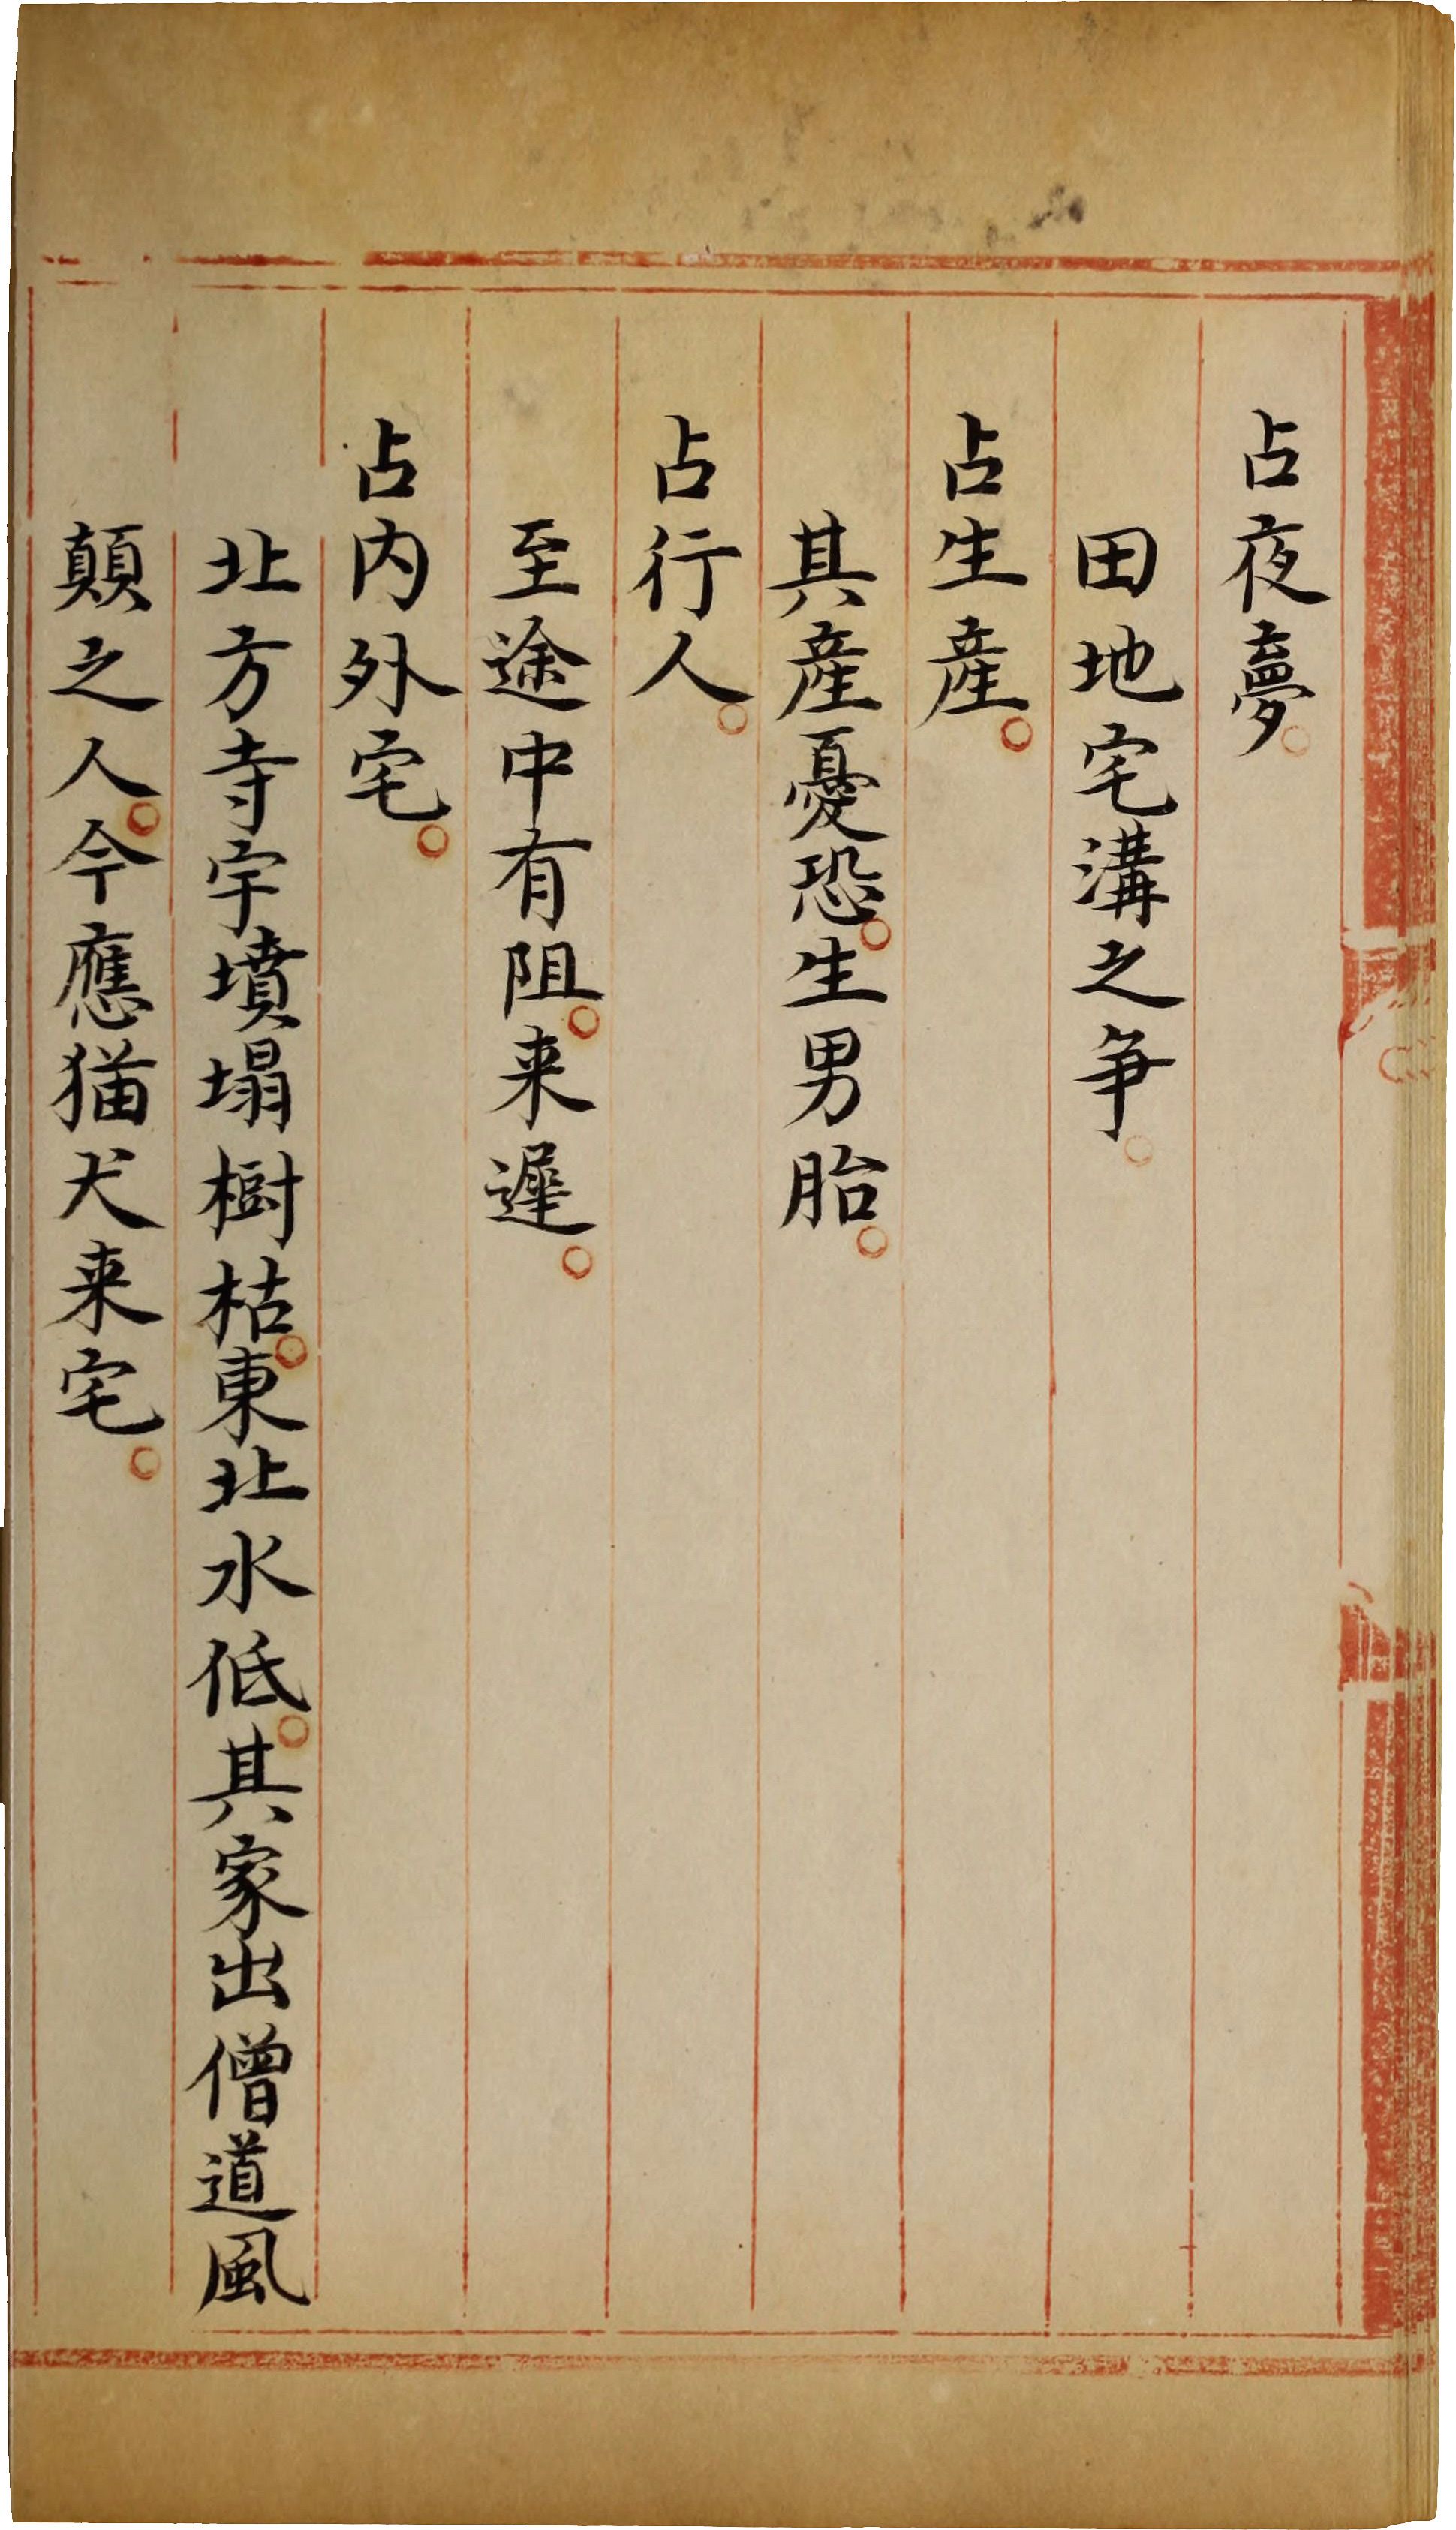 占夜夢。
田地宅溝之争。
占生產。
其產憂恐。生男胎。
占行人。
至途中有阻。来遲。
占内外宅。
北方寺宇墳塌樹枯。東北水低。其家出僧道風
顛之人。今應猫犬来宅。